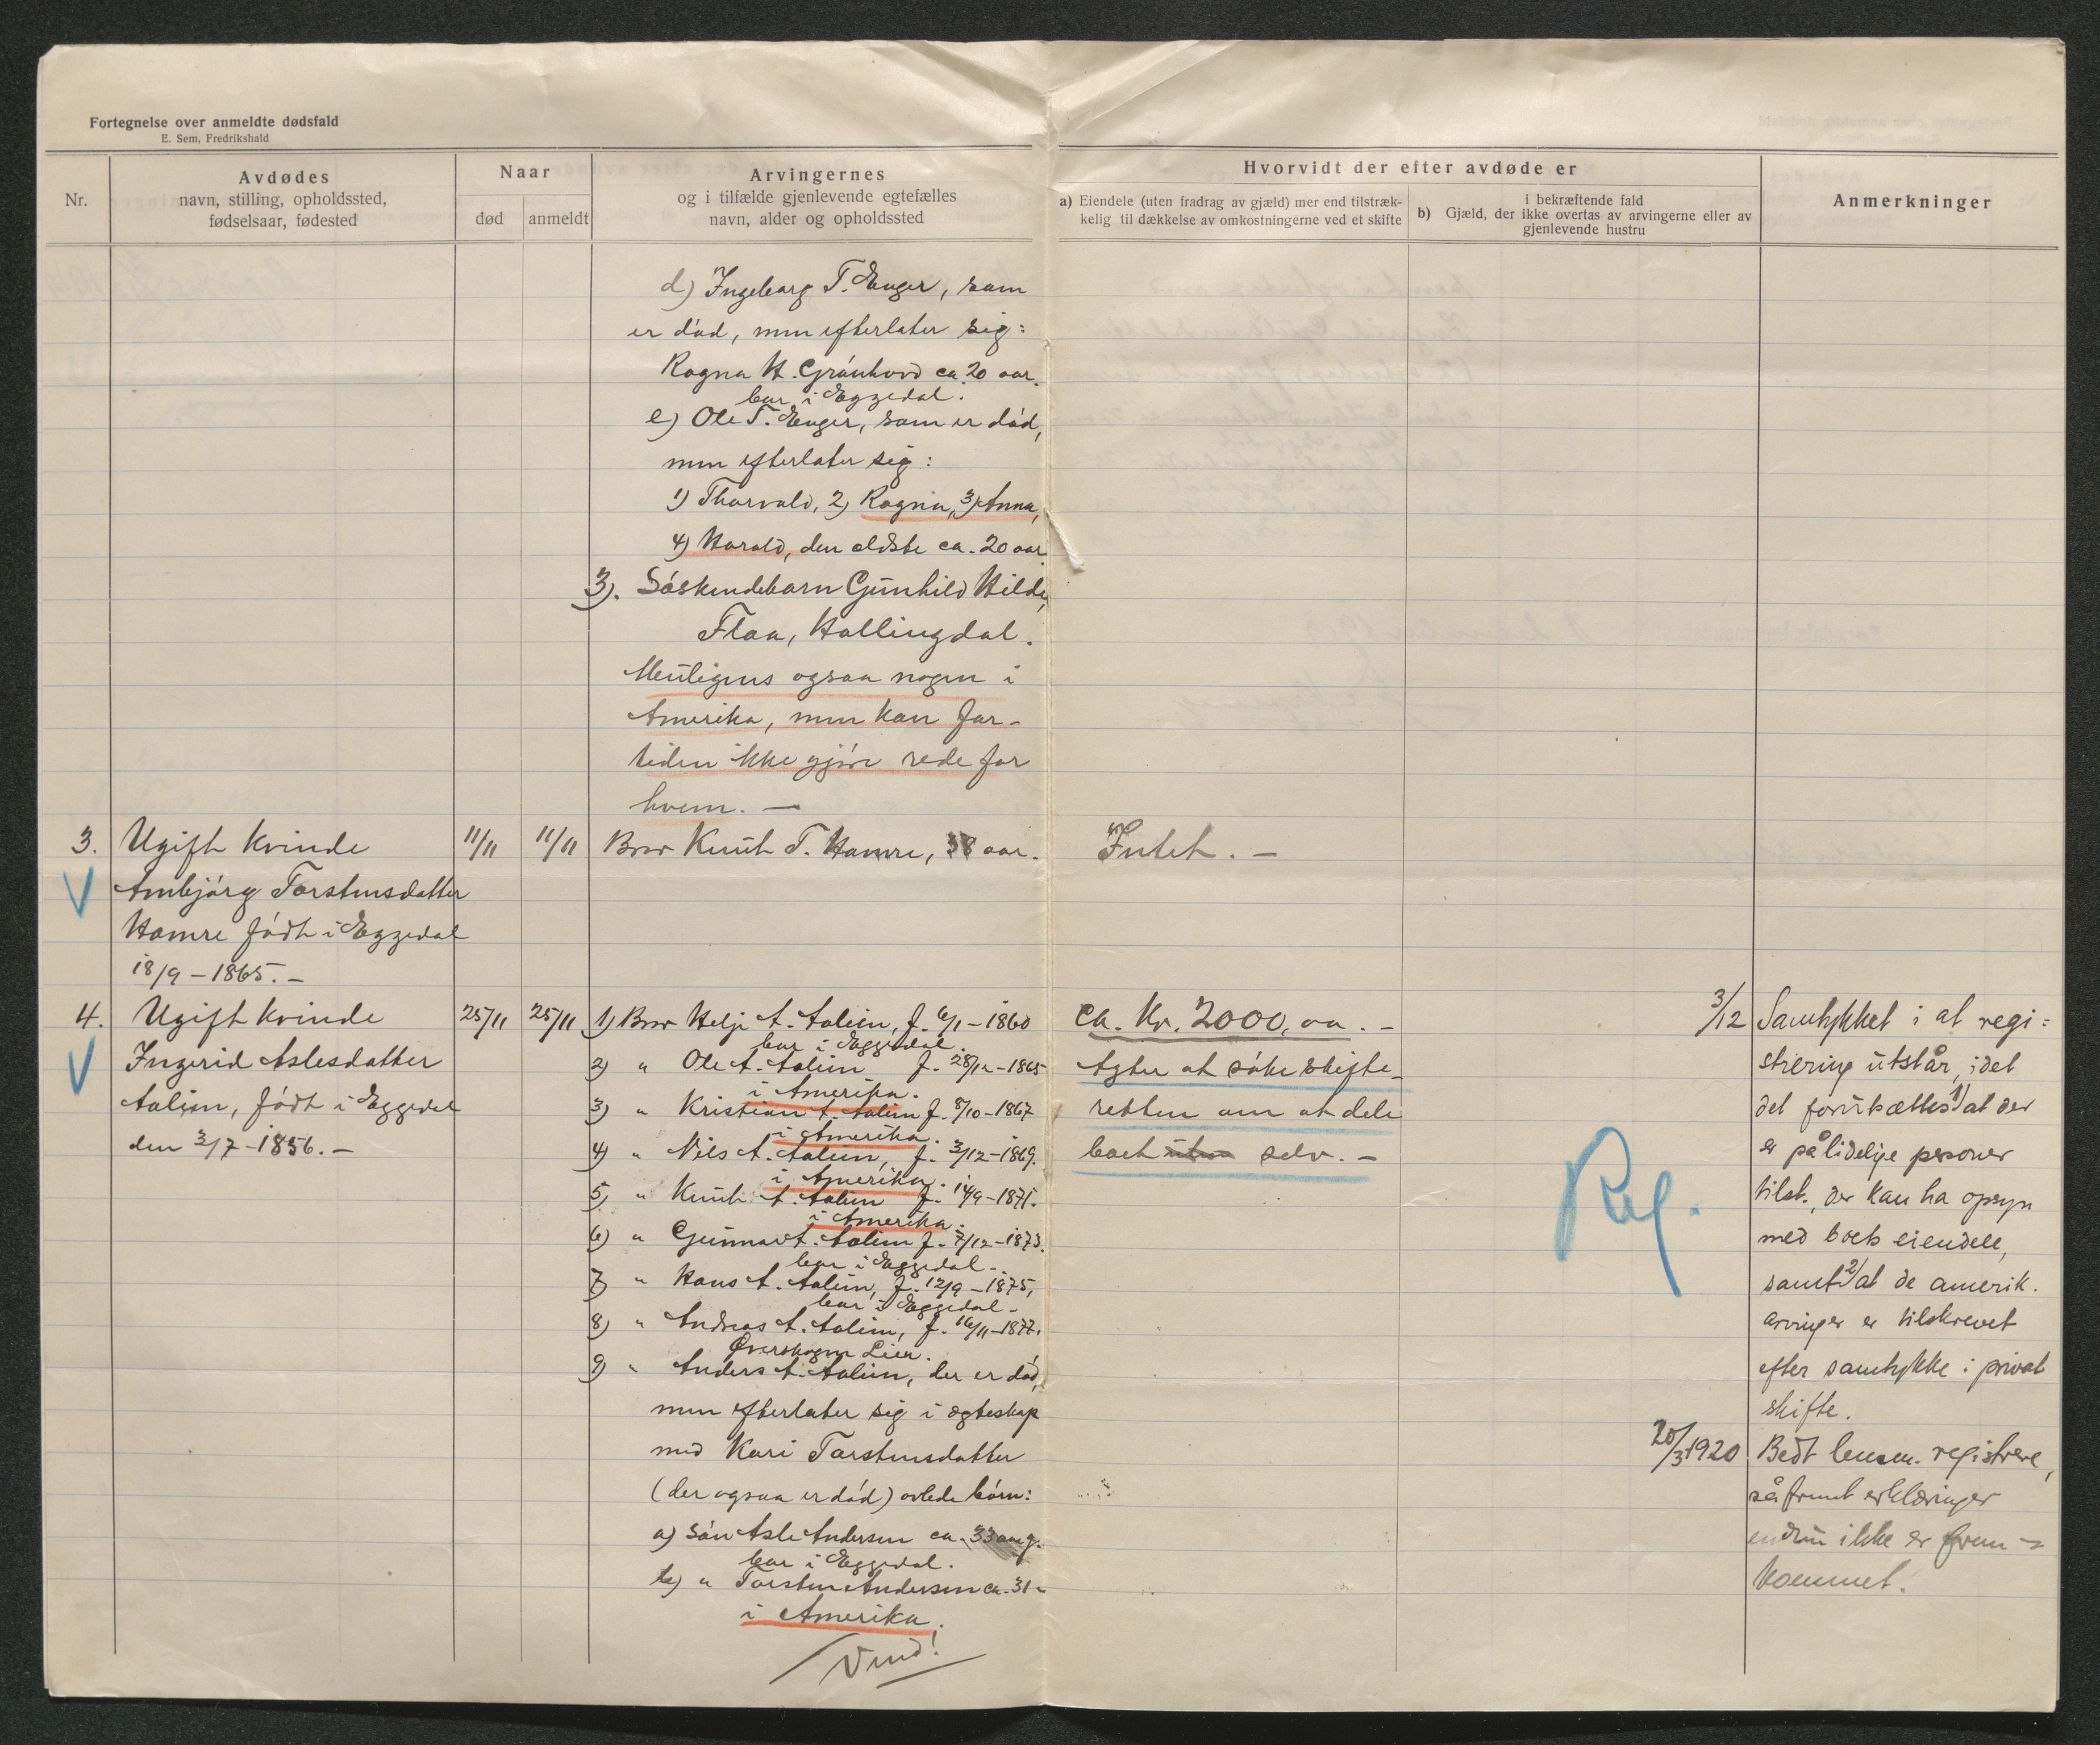 Fortegnelse over anmeldte dødsfald
E. Sem, Fredrikshald
Nr.
Avdødes
navn, stilling, opholdssted,
fødselsaar, fødested
Naar
død
anmeldt
Arvingernes
og i tilfælde gjenlevende egtefælles
navn, alder og opholdssted
Hvorvidt der efter avdøde er
a) Eiendele (uten fradrag av gjæld) mer end tilstræk-
kelig til dækkelse av omkostningerne ved et skifte
i bekræftende fald
b) Gjæld, der ikke overtas av arvingerne eller av
gjenlevende hustru
Anmerkninger
d) Ingeborg T. Enger, som
er død, men efterlater sig:
Ragna H. Grønhovd ca. 20 aar.
bor i Eggedal.
e) Ole T. Enger, som er død,
men efterlater sig:
1) Thorvald, 2) Ragna, 3) Anna,
4) Harald, den ældste ca. 20 aar
3). Søskendebarn Gunhild Hilde,
Flaa, Hallingdal.
Muligens ogsaa nogen i
Amerika, men kan for-
tiden ikke gjøre rede for
hvem. —
3.
Ugift kvinde
Ambjørg Torstensdatter
Hamre født i Eggedal
18/9 – 1865. –
11/11
11/11
Bror Knut T. Hamre, 38 aar.
Intet. –
4.
Ugift kvinde
Ingerid Aslesdatter
Aalien, født i Eggedal
den 3/7 – 1856. –
25/11
25/11
1) Bror Helje A. Aalien, f. 6/1 – 1860
bor i Eggedal.
2) " Ole A. Aalien f. 28/12 – 1865
i Amerika.
3) " Kristian A. Aalien f. 8/10 – 1867
i Amerika.
4) " Nils A. Aalien, f. 3/12 – 1869.
i Amerika.
5) " Knut A. Aalien f. 14/9 – 1871.
i Amerika.
6) " Gunnar A. Aalien f. 7/12 – 1873.
bor i Eggedal –
7) " Hans A. Aalien, f. 12/9 – 1875,
bor i Eggedal –
8) " Andreas A. Aalien, f. 16/11 – 1877.
Øverskogen Lien.
9) " Anders A. Aalien, der er død,
men efterlater sig i ægteskap
med Kari Torstensdatter
(der ogsaa er død) avlede børn:
a) Søn Asle Andersen ca. 33 aar g.
bor i Eggedal.
b) " Torsten Andersen ca. 31 "
i Amerika.
Vend!
ca. Kr. 2000, oo. –
Agter at søke skifte-
retten om at dele
boet uten selv. –
Reg.
3/12 Samtykket i at regi=
strering utstår, idet
det forutsættes 1) at der
er pålidelige personer
tilst., der kan ha opsyn
med boets eiendele,
samt 2) at de amerik.
arvinger er tilskrevet
efter samtykke i privat
skifte.
20/3 1920 Bedt lensm. registrere,
såfremt erklæringer
endnu ikke er frem-
kommet.